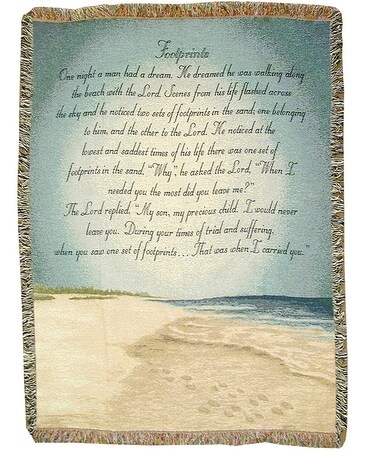 Footprints
One night a man had a dream. He dreamed he was walking along
the beach with the Lord. Scenes from his life flashed across
the sky and he noticed two sets of footprints in the sand, one belonging
to him, and the other to the Lord. He noticed at the
lowest and saddest times of his life there was one set of
footprints in the sand. "Why", he asked the Lord, "When I
needed you the most did you leave me?"
The Lord replied, "My son, my precious child. I would never
leave you. During your times of trial and suffering,
when you saw one set of footprints... That was when I carried you."